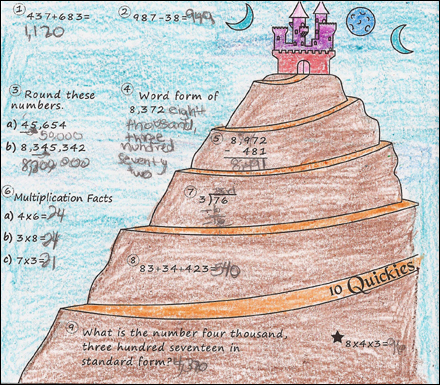 ① 437+683=
1,120
② 987-38=949
③ Round these
numbers.
a) 45,654
50000
b) 8,345,342
④ Word form of
8,372 eight
thousand,
three
hundred
seventy
two
⑤ 8,972
481
8,491
⑥ Multiplication Facts
a) 4x6=24
b) 3x8=24
c) 7x3=21
⑦ 3)76
⑧ 83+34+423=540
10 Quickies
⑨ What is the number four thousand,
three hundred seventeen in
standard form?
★ 8x4x3=